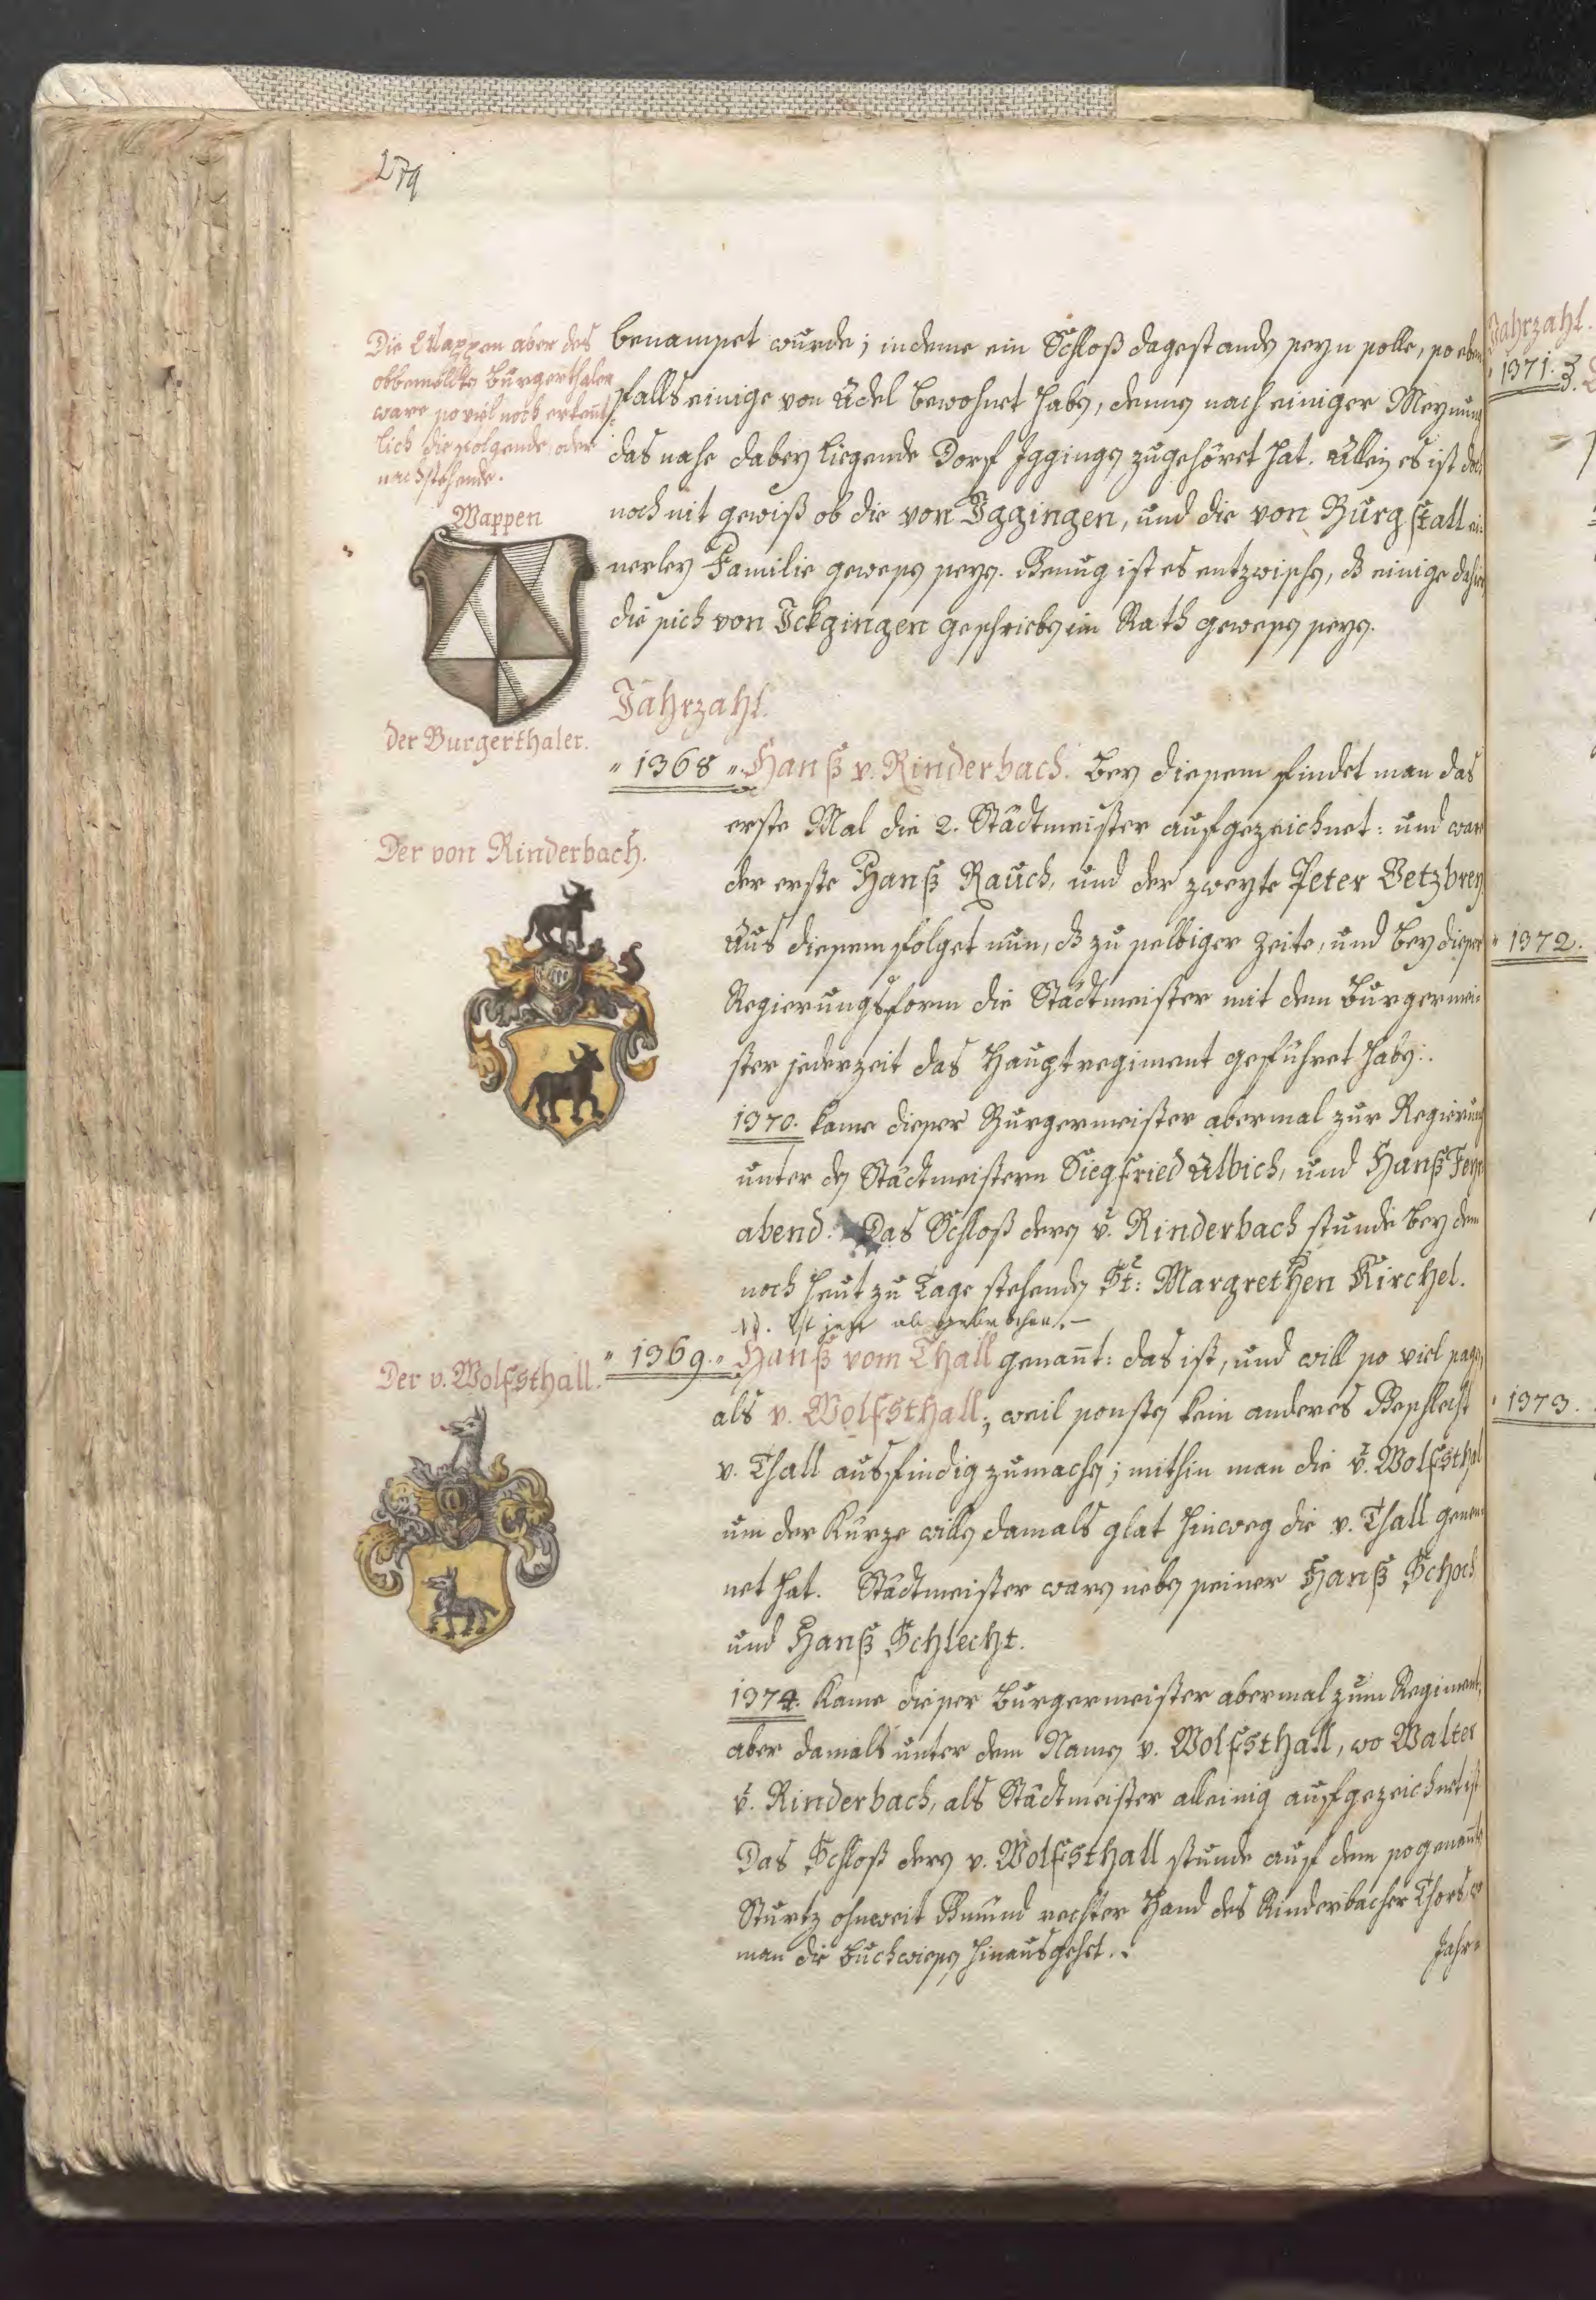 279
Die Wappen aber des
obbemeldts Burgerthaler
ware so viel noch erkent=
lich die folgende, oder
nachstehende.
Wappen
der Burgerthaler.
Der von Rinderbach.
Der v. Wolfsthall.
benamset wurde; indeme ein Schloß dagestanden seyn solle, so eben
falls einige von Adel bewohnet haben, denen nach einiger Meynung
das nahe dabey liegende Dorf Iggingen zugehöret hat. Allein es ist doch
noch nit gewiß ob die von Iggingen, und die von Burgstall ei=
nerley Familie gewesen seyen. Genug ist es entzwischen, dß einige dahier
die sich von Ickgingen geschrieben im Rath gewesen seyen.
Jahrzahl.
" 1368 " Hanß v. Rinderbach. Bey diesem findet man das
erste Mal die 2. Städtmeister aufgezeichnet: und war
der erste Hanß Rauch, und der zweyte Peter Vetzbrey
Aus diesem folget nun, dß zu selbiger Zeite, und bey dieser
Regierungsform die Städtmeister mit dem Burgermei=
ster jederzeit das Hauptregiment geführet haben.
1370. kame dieser Burgermeister abermal zur Regierung
unter den Städtmeistern Siegfried Albich, und Hanß Feyr
abend. Das Schloß deren v. Rinderbach stunde bey dem
noch heut zu Tage stehenden St: Margrethen Kirchel.
NB. Ist jezt abgebrochen.—
" 1369. " Hanß vom Thall genannt: das ist, und will so viel sagen,
als v. Wolfsthall; weil sonsten kein anderes Geschlecht
v. Thall ausfindig zumachen; mithin man die v. Wolfsthal
um der Kürze willen damals glat hinweg die v. Thall genen
net hat. Städtmeister waren neben seiner Hanß Schoch
und Hanß Schlecht.
1374. Kame dieser Burgermeister abermal zum Regiment,
aber damals unter dem Namen v. Wolfsthall, wo Walter
v. Rinderbach, als Städtmeister alleinig aufgezeichnet ist
Das Schloß deren v. Wolfsthall stunde auf dem sogenannte
Sturtz ohnweit Gmünd rechter Hand des Rinderbacher Thors, wo
man die Buchwiesen hinausgehet.
Jahr=
Jahrzahl.
" 1371. "
" 1372.
" 1373.